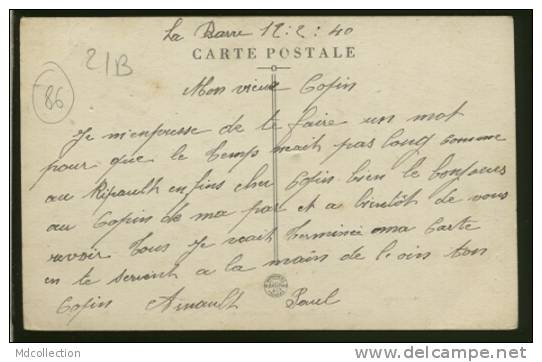 La Barre 12:2:40
CARTE POSTALE
21B
86
Mon vieux Copin
Je m'enpresse de te faire un mot
pour que le temps pas long comme
au Ripault enfins cher Copin bien le bonjours
au Copin de ma par et a bientôt de vous
revoir tous Je vait terminée ma Carte
en te serrent a la main de loin ton
Copin Arnault Paul
Mdcollection
www.delcampe.net